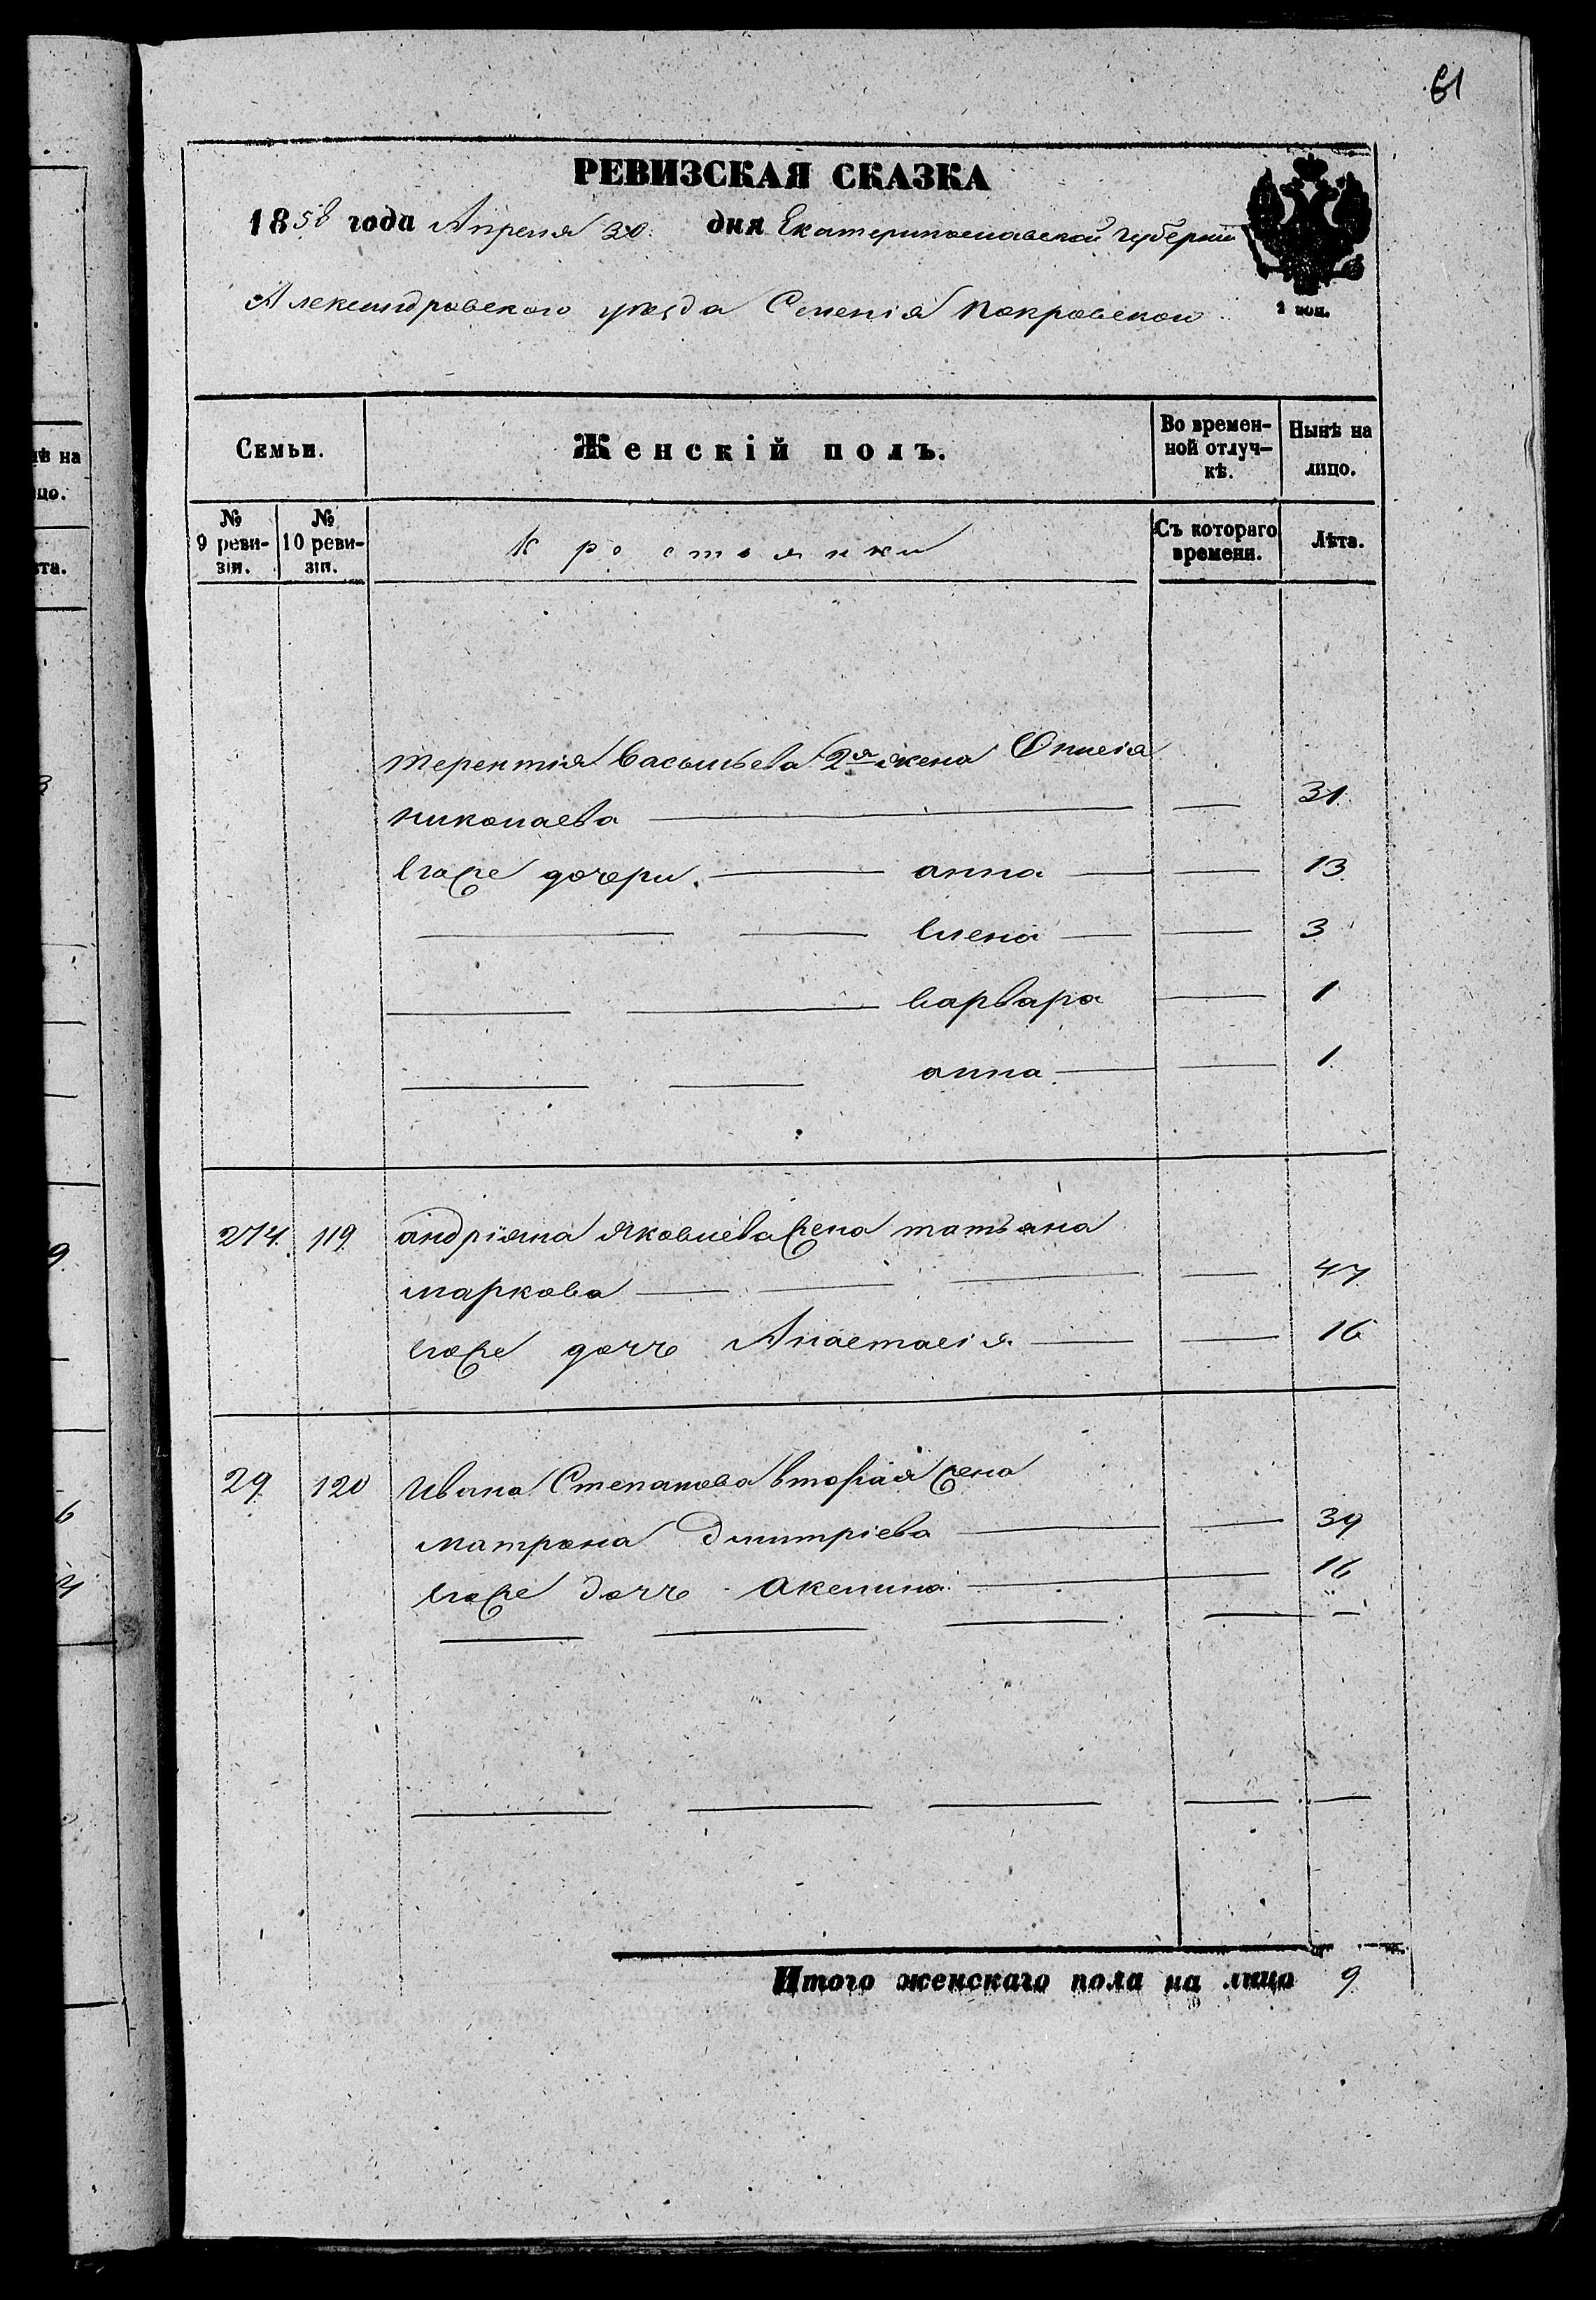 61
РЕВИЗСКАЯ СКАЗКА
1858 года Апреля 30 дня Екатеринославской Губерніи
Александровского уѣзда Селенія Покровского
2 коп.
Семьи. Женскій полъ. Во времен- Нынѣ на
ной отлуч- лицо.
кѣ.
№ № Крестьянки Съ котораго Лѣта.
9 реви- 10 реви- времени.
зіи. зіи.
Терентія Васильева 2я жена
Николаева 31
Егоже дочери анна 13
Елена 3
Варвара 1
анна 1
274 119 андріяна Яковлева жена татьяна
маркова 47
Егоже дочь Анастасія 16
29 120 Ивана Степанова вторая жена
Матрона Дмитріева 39
Егоже дочь Акелина 16
Итого женскаго пола на лицо 9
нѣ на
цо.
та.
3
9
6